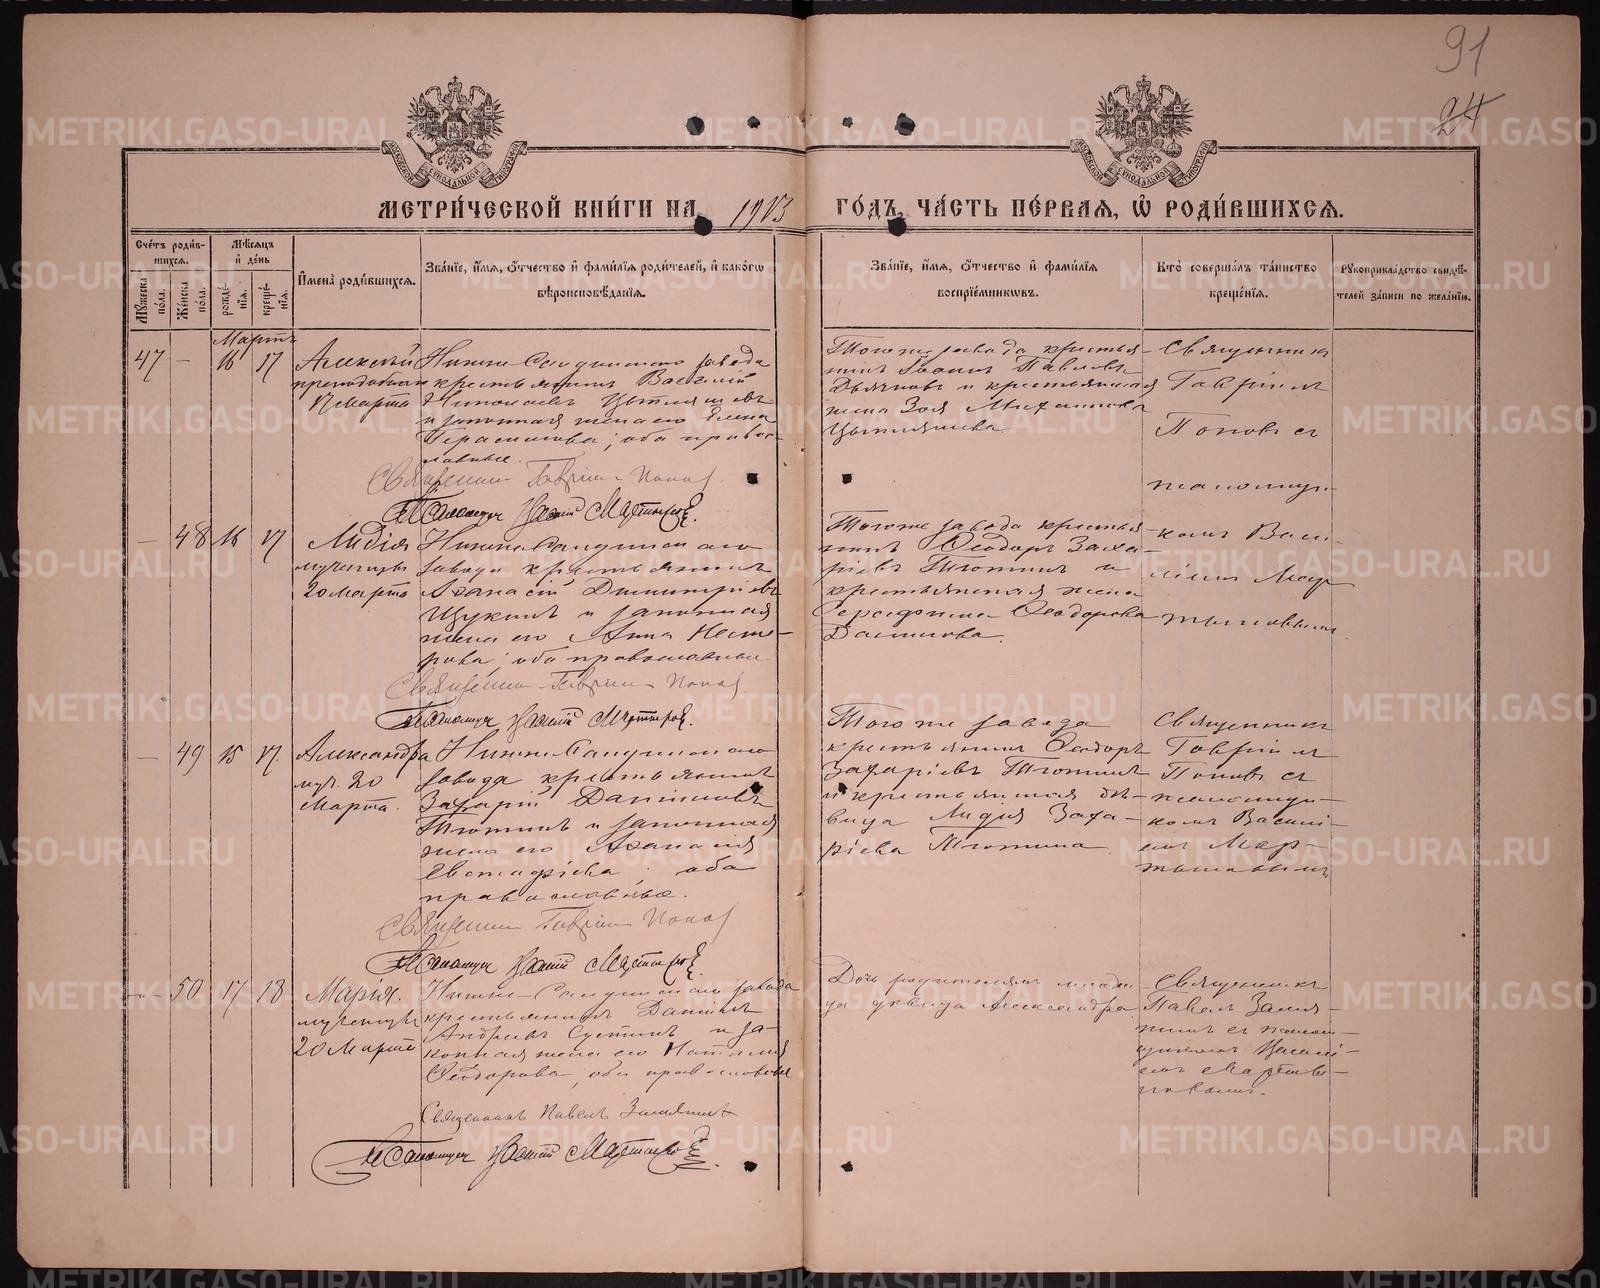 91
24
МЕТРИ́ЧЕСКОЙ КНИ́ГИ НА 1903 ГО́ДЪ, ЧА́СТЬ ПЕ́РВАЯ, Ѡ҆ РОДИ́ВШИХСЯ.
Сче́тъ роди́вшихся.
Мꙋ́жеска по́ла.
Же́нска по́ла.
Мѣ́сяцъ и҆ де́нь
рожде́нїя.
креще́нїя.
И҆мена̀ роди́вшихся.
Зва́нїе, и҆́мя, ѻ҆́тчество и҆ фами́лїя роди́телей, и҆ како́гѡ
вѣроисповѣ́данїя.
Зва́нїе, и҆́мя, ѻ҆́тчество и҆ фами́лїя
воспрїе́мникѡвъ.
Кто̀ соверша́лъ та́инство
креще́нїя.
Рꙋкоприкла́дство свидѣ́-
телей за́писи по жела́нїю.
Мартъ
47 — 16 17
Алексѣй
преподобнаго
17 Марта
Нижне-Салдинскаго завода
крестьянинъ Василій
Николаевъ Цыпляшевъ
и законная жена его Елена
Герасимова; оба право-
славные.
Священникъ Гавріилъ Поповъ
Псаломщикъ Василій Мартыновъ
Тогоже завода крестья-
нинъ Іоаннъ Павловъ
Дьячковъ и крестьянская
жена Зоя Михаилова
Цыпляшева.
Священникъ
Гавріилъ
Поповъ съ
псаломщи-
комъ Васи-
ліемъ Мар-
тыновымъ
— 48 16 17
Лидія
мученицы
20 Марта
Нижне-Салдинскаго
завода крестьянинъ
Аѳанасій Димитріевъ
Щукинъ и законная
жена его Анна Несте-
рова; оба православные
Священникъ Гавріилъ Поповъ
Псаломщикъ Василій Мартыновъ
Тогоже завода крестья-
нинъ Ѳеодоръ Заха-
ріевъ Тютинъ и
крестьянская жена
Серафима Ѳеодорова
Данилова.
— 49 15 17.
Александра
муч. 20
Марта.
Нижне-Салдинскаго
завода крестьянинъ
Захарій Даниловъ
Тютинъ и законная
жена его Аѳанасія
Евстафіева; оба
православные.
Священникъ Гавріилъ Поповъ
Псаломщикъ Василій Мартыновъ
Тогоже завода
крестьянинъ Ѳеодоръ
Захаріевъ Тютинъ
и крестьянская дѣ-
вица Лидія Заха-
ріева Тютина.
Священникъ
Гавріилъ
Поповъ съ
псаломщи-
комъ Васили-
емъ Мар-
тыновымъ
— 50 17 18
Марія.
мученицы
20 Марта
Нижне-Салдинскаго завода
крестьянинъ Даніилъ
Андреевъ Сустинъ и за-
конная жена его Наталія
Ѳеодорова, оба православные
Священникъ Павелъ Замятинъ
Псаломщикъ Василій Мартыновъ
дѣвица Александра
Священникъ
Павелъ Замя-
тинъ съ псалом-
щикомъ Василі-
емъ Марты-
новымъ.
METRIKI.GASO-URAL.RU